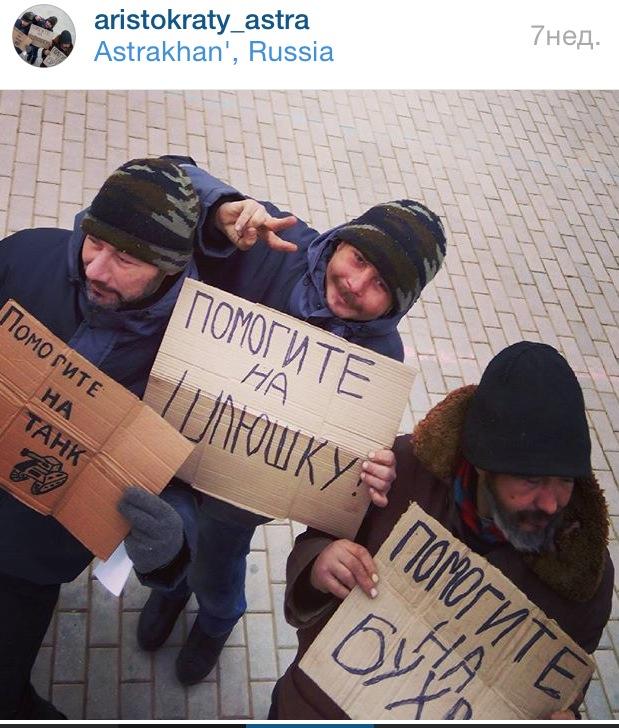 aristokraty_astra
Astrakhan', Russia
7нед.
ПОМОГИТЕ
НА
ТАНК
ПОМОГИТЕ
НА
ШЛЮШКУ!
ПОМОГИТЕ
НА
БУХ